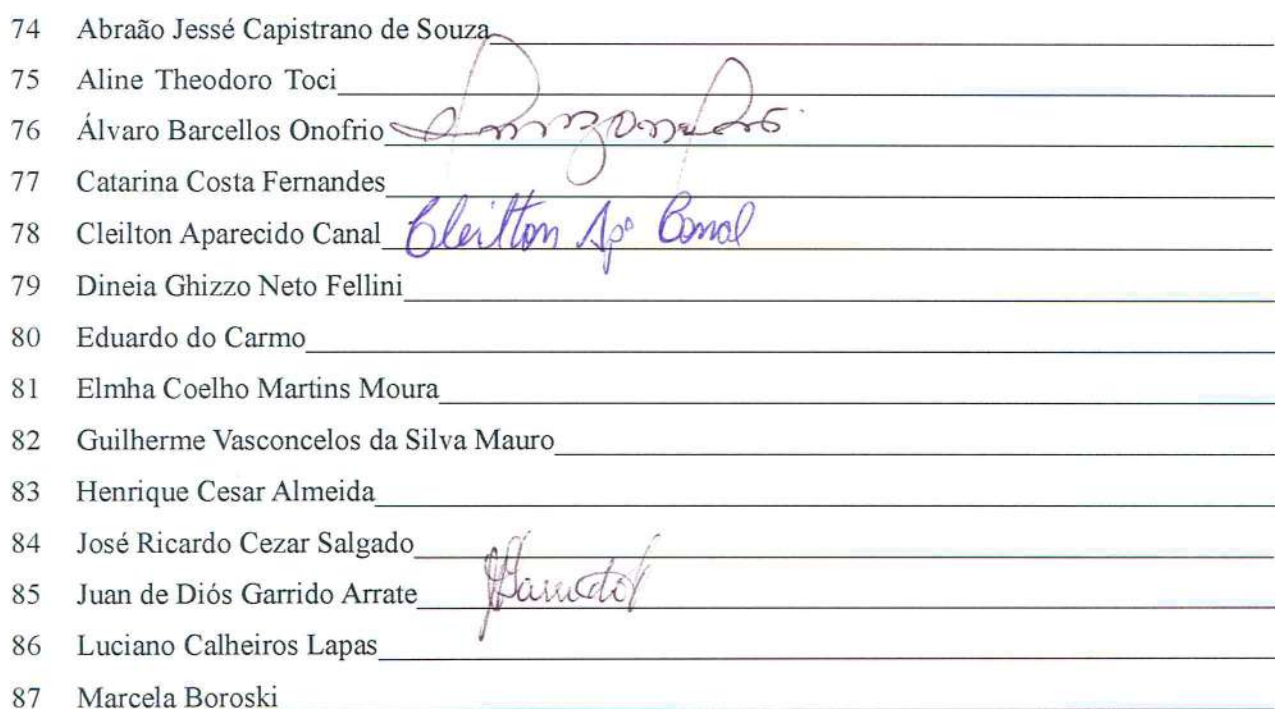 74 Abraão Jessé Capistrano de Souza
75 Aline Theodoro Toci
76 Álvaro Barcellos Onofrio
77 Catarina Costa Fernandes
78 Cleilton Aparecido Canal Cleilton Apº Canal
79 Dineia Ghizzo Neto Fellini
80 Eduardo do Carmo
81 Elmha Coelho Martins Moura
82 Guilherme Vasconcelos da Silva Mauro
83 Henrique Cesar Almeida
84 José Ricardo Cezar Salgado
85 Juan de Diós Garrido Arrate
86 Luciano Calheiros Lapas
87 Marcela Boroski